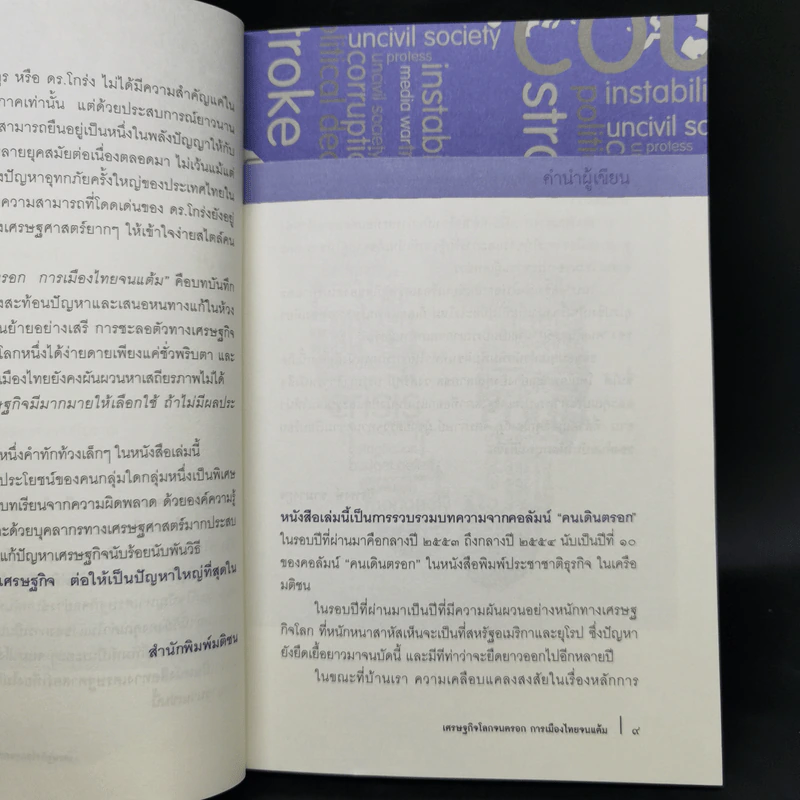 ร หรือ ดร.โกร่ง ไม่ได้มีความสำคัญแค่ใน
ภาคเท่านั้น แต่ด้วยประสบการณ์ยาวนาน
สามารถยืนอยู่เป็นหนึ่งในพลังปัญญาให้กับ
ลายยุคสมัยต่อเนื่องตลอดมา ไม่เว้นแม้แต่
งปัญหาอุทกภัยครั้งใหญ่ของประเทศไทยใน
ความสามารถที่โดดเด่นของ ดร.โกร่งยังอยู่
งเศรษฐศาสตร์ยากๆ ให้เข้าใจง่ายสไตล์คน
รอก การเมืองไทยจนแต้ม" คือบทบันทึก
งสะท้อนปัญหาและเสนอหนทางแก้ในห้วง
นย้ายอย่างเสรี การชะลอตัวทางเศรษฐกิจ
โลกหนึ่งได้ง่ายดายเพียงแค่ชั่วพริบตา และ
เมืองไทยยังคงผันผวนหาเสถียรภาพไม่ได้
ฐกิจมีมากมายให้เลือกใช้ ถ้าไม่มีผลประ
หนึ่งคำทักท้วงเล็กๆ ในหนังสือเล่มนี้
ประโยชน์ของคนกลุ่มใดกลุ่มหนึ่งเป็นพิเศษ
บทเรียนจากความผิดพลาด ด้วยองค์ความรู้
ะด้วยบุคลากรทางเศรษฐศาสตร์มากประสบ
แก้ปัญหาเศรษฐกิจนับร้อยนับพันวิธี
เศรษฐกิจ ต่อให้เป็นปัญหาใหญ่ที่สุดใน
สำนักพิมพ์มติชน
troke
political dec
uncivil society
corruptio
uncivil society
protess
media war
instab
stro
COU
politi
instabili
uncivil so
protess
คำนำผู้เขียน
หนังสือเล่มนี้เป็นการรวบรวมบทความจากคอลัมน์ "คนเดินตรอก"
ในรอบปีที่ผ่านมาคือกลางปี ๒๕๕๓ ถึงกลางปี ๒๕๕๔ นับเป็นปีที่ ๑๐
ของคอลัมน์ "คนเดินตรอก" ในหนังสือพิมพ์ประชาชาติธุรกิจ ในเครือ
มติชน
ในรอบปีที่ผ่านมาเป็นปีที่มีความผันผวนอย่างหนักทางเศรษฐ
กิจโลก ที่หนักหนาสาหัสเห็นจะเป็นที่สหรัฐอเมริกาและยุโรป ซึ่งปัญหา
ยังยืดเยื้อยาวมาจนบัดนี้ และมีทีท่าว่าจะยืดยาวออกไปอีกหลายปี
ในขณะที่บ้านเรา ความเคลือบแคลงสงสัยในเรื่องหลักการ
เศรษฐกิจโลกจนตรอก การเมืองไทยจนแต้ม | ๙